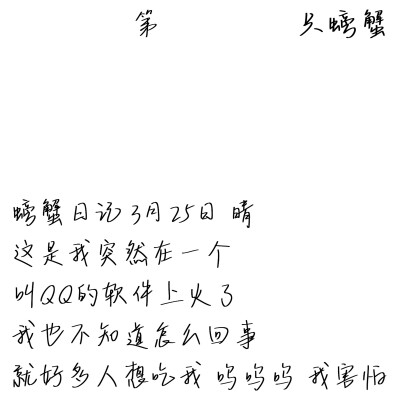 第 只螃蟹
螃蟹日记3月25日 晴
这是我突然在一个
叫QQ的软件上火了
我也不知道怎么回事
就好多人想吃我 呜呜呜 我害怕